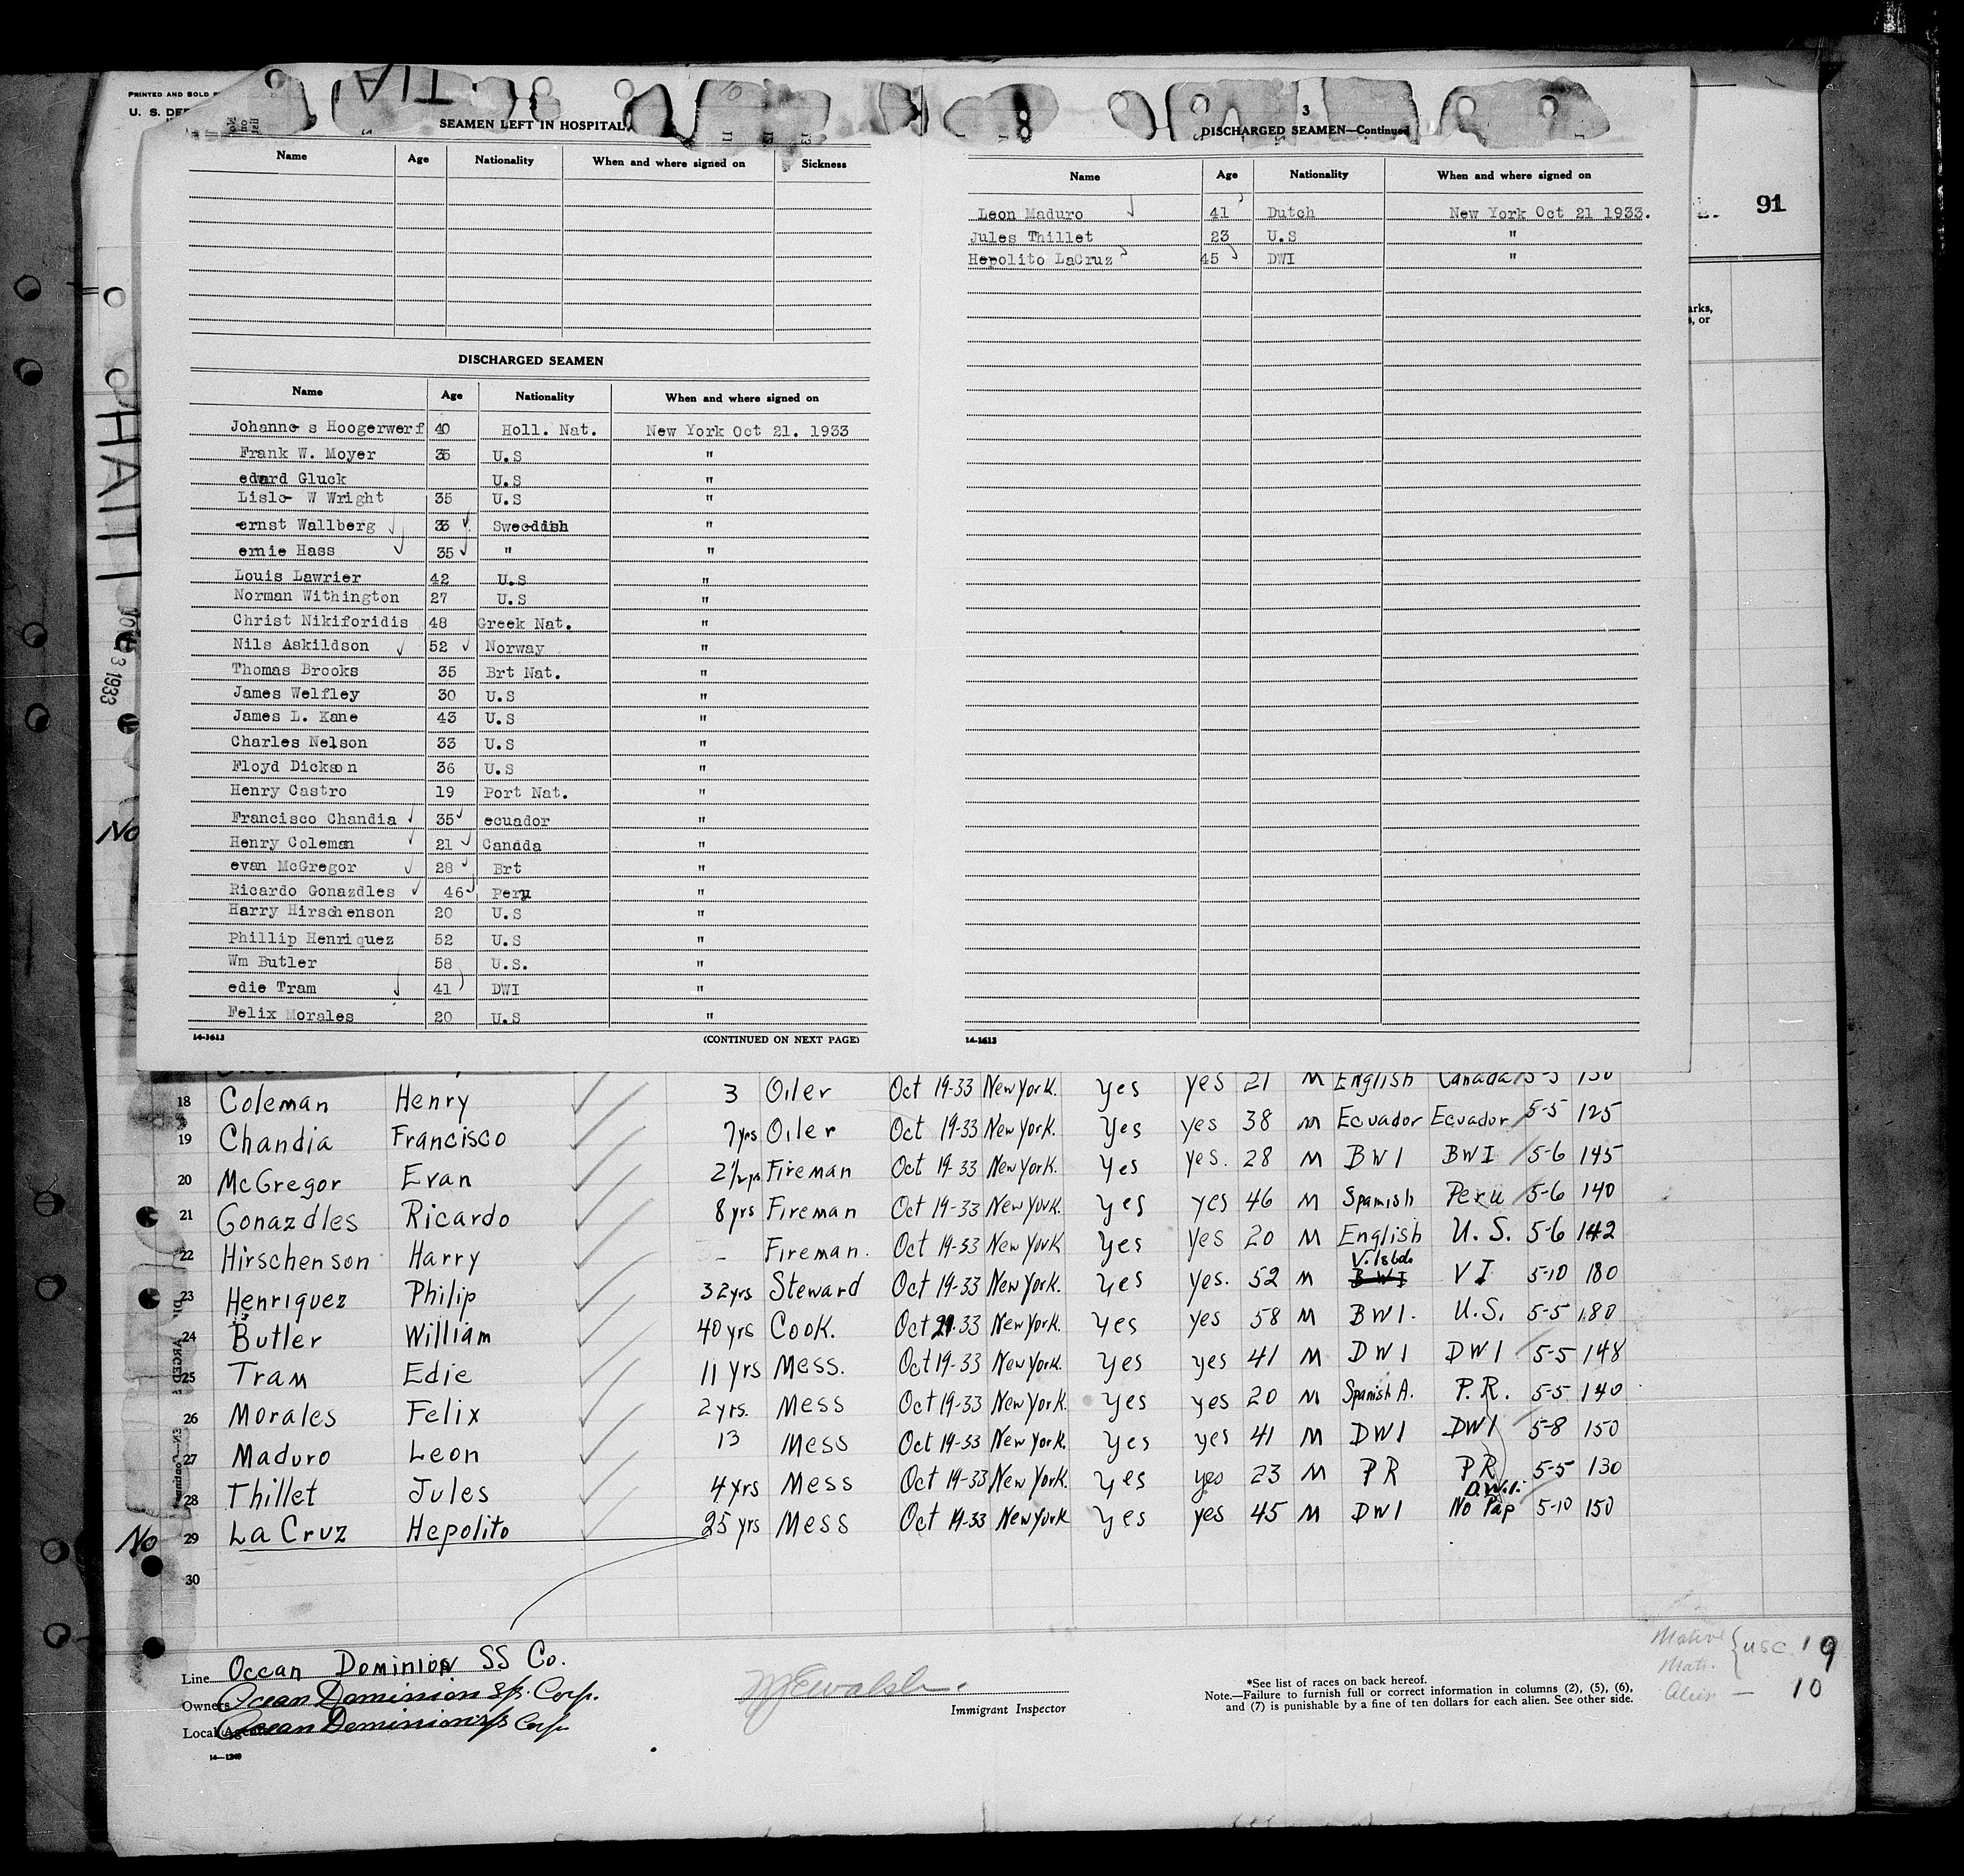 PRINTED AND SOLD
U. S. DE
SEAMEN LEFT IN HOSPITAL
Name Age Nationality When and where signed on Sickness
DISCHARGED SEAMEN
Name Age Nationality When and where signed on
Johanne s Hoogerwerf 40 Holl. Nat. New York Oct 21. 1933
Frank W. Moyer 35 U.S "
edward Gluck U.S "
Lisle W Wright 35 U.S "
ernst Wallberg 33 Swedish "
ernie Hass 35 " "
Louis Lawrier 42 U.S "
Norman Withington 27 U.S "
Christ Nikiforidis 48 Greek Nat. "
Nils Askildson 52 Norway "
Thomas Brooks 35 Brt Nat. "
James Welfley 30 U.S "
James L. Kane 43 U.S "
Charles Nelson 33 U.S "
Floyd Dickson 36 U.S "
Henry Castro 19 Port Nat. "
Francisco Chandia 35 ecuador "
Henry Coleman 21 Canada "
evan McGregor 28 Brt "
Ricardo Gonazdles 46 Peru "
Harry Hirschenson 20 U.S "
Phillip Henriquez 52 U.S "
Wm Butler 58 U.S. "
edie Tram 41 DWI "
Felix Morales 20 U.S "
14-1613 (CONTINUED ON NEXT PAGE)
3
DISCHARGED SEAMEN—Continued
Name Age Nationality When and where signed on
Leon Maduro 41 Dutch New York Oct 21 1933.
Jules Thillet 23 U.S "
Hepolito LaCruz 45 DWI "
14-1613
91
arks,
s, or
HAITI
3 1933
No
18 Coleman Henry 3 Oiler Oct 19-33 New York. Yes yes 21 M English Canada 5-5 130
19 Chandia Francisco 7yrs Oiler Oct 19-33 New York. Yes yes 38 M Ecuador Ecuador 5-5 125
20 McGregor Evan 2½yrs Fireman Oct 19-33 New York. Yes yes. 28 M BWI BWI 5-6 145
21 Gonazdles Ricardo 8yrs Fireman Oct 19-33 New York. Yes yes 46 M Spanish Peru 5-6 140
22 Hirschenson Harry - Fireman. Oct 19-33 New York Yes yes 20 M English U.S. 5-6 142
23 Henriquez Philip 32yrs Steward Oct 19-33 New York. Yes yes. 52 M V.Isld. BWI VI 5-10 180
24 Butler William 40yrs Cook. Oct 21-33 New York. Yes yes 58 M BWI. U.S. 5-5 180
25 Tram Edie 11 yrs Mess. Oct 19-33 New York. Yes yes 41 M DWI DWI 5-5 148
26 Morales Felix 2yrs. Mess Oct 19-33 New York. Yes yes 20 M Spanish A. P.R. 5-5 140
27 Maduro Leon 13 Mess Oct 19-33 New York. Yes yes 41 M DWI DWI 5-8 150
28 Thillet Jules 4yrs Mess Oct 19-33 New York. Yes yes 23 M PR PR 5-5 130
No 29 La Cruz Hepolito 25 yrs Mess Oct 19-33 New York Yes yes 45 M DWI D.W.I. No Pap 5-10 150
30
Line Ocean Dominion SS Co.
Owners Ocean Dominion S/S. Corp.
Local Agents Ocean Dominion S/S Corp
14—1240
Immigrant Inspector
*See list of races on back hereof.
Note.—Failure to furnish full or correct information in columns (2), (5), (6),
and (7) is punishable by a fine of ten dollars for each alien. See other side.
Native
USC 19
Alien — 10